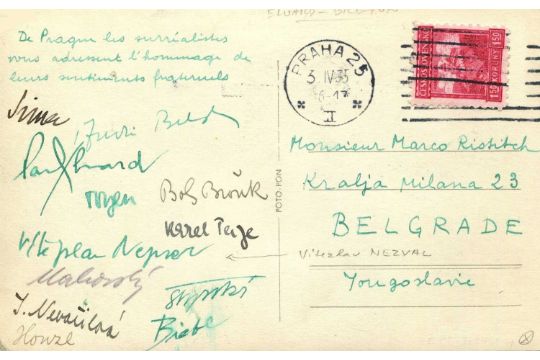 ELUARD - BRETON
De Prague les surréalistes
vous adressent l'hommage de
leurs sentiments fraternels
Sima
Paul Eluard
Toyen
Bob Brouk
Karel Teige
Nezval
Makovský
Štyrský
J. Nevařilová
Biebl
Honzl
FOTO-FON
PRAHA 25
3 IV 35
II
ČESKOSLOVENSKO
1.50
Monsieur Marco Ristitch
Kralja Milana 23
BELGRADE
Vitezlav NEZVAL
Yougoslavie